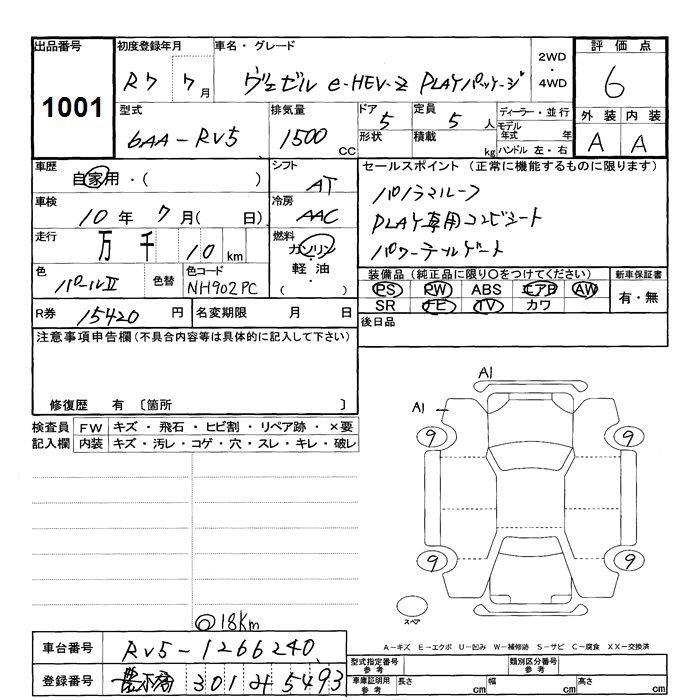 出品番号 初度登録年月 車名・グレード 2WD ・ 4WD 評価点
1001 R7 7月 ヴェゼル e-HEV-Z PLAYパッケージ 6
型式 排気量 ドア 5 定員 5 人 ディーラー・並行 外装 内装
6AA-RV5 1500 CC 形状 積載 kg モデル年式 年 ハンドル 左・右 A A
車歴 自家用・( ) シフト AT セールスポイント (正常に機能するものに限ります)
車検 10年 7月( 日) 冷房 AAC パノラマルーフ
PLAY専用コンビシート
走行 万 千 10 km 燃料 ガソリン・軽油・( ) パワーテールゲート
色 パールII 色替 色コード NH902PC 装備品 (純正品に限り〇をつけてください) 新車保証書
PS PW ABS エアB AW 有・無
R券 15420 円 名変期限 月 日 SR ナビ TV カワ
注意事項申告欄 (不具合内容等は具体的に記入して下さい) 後日品
修復歴 有 〔箇所 〕
検査員 FW キズ・飛石・ヒビ割・リペア跡・×要
記入欄 内装 キズ・汚レ・コゲ・穴・スレ・キレ・破レ
A1
A1
9 9
9 9
スペア
@18Km
A-キズ E-エクボ U-凹み W-補修跡 S-サビ C-腐食 XX-交換済
車台番号 RV5-1266240
型式指定番号 参考 類別区分番号 参考
登録番号 301 5493
車庫証明用 参考 長さ cm 幅 cm 高さ cm